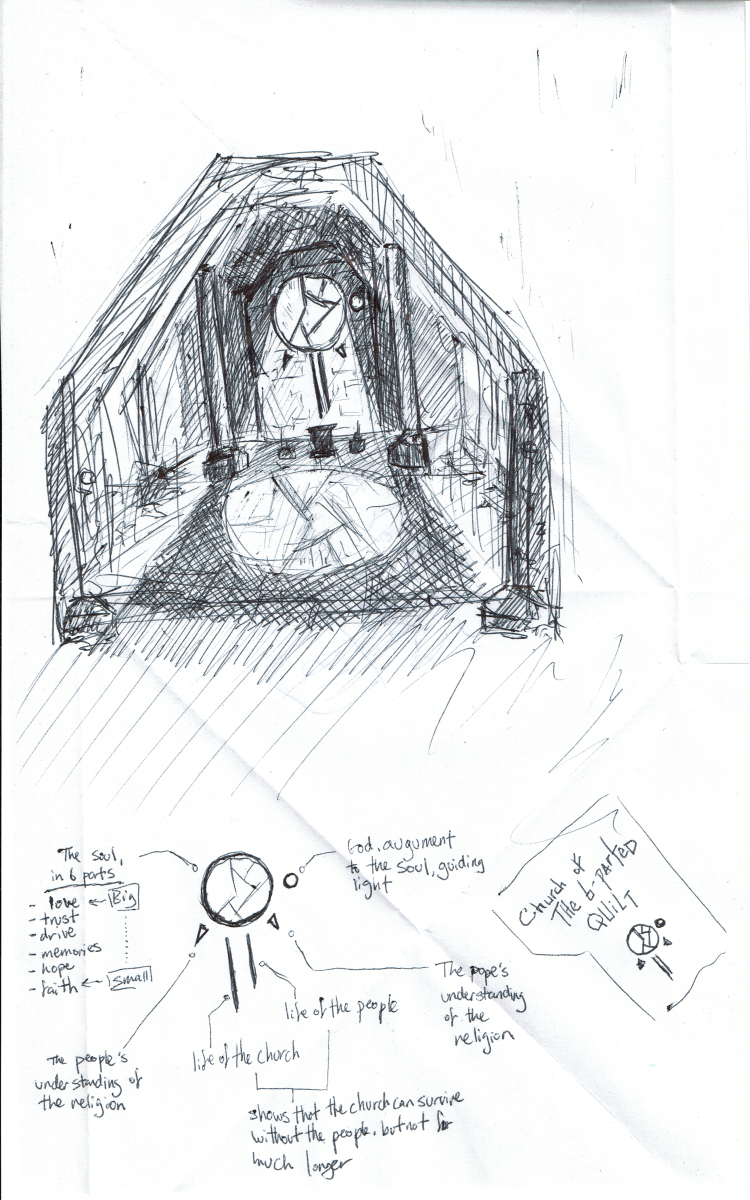 The soul,
in 6 parts
- love ← Big
- trust
- drive
- memories
- hope
- faith ← small
God, augument
to the soul, guiding
light
Church of
The 6-parted
QUILT
The pope's
understanding
of the
religion
life of the people
life of the church
The people's
understanding of
the religion
shows that the church can survive
without the people, but not for
much longer